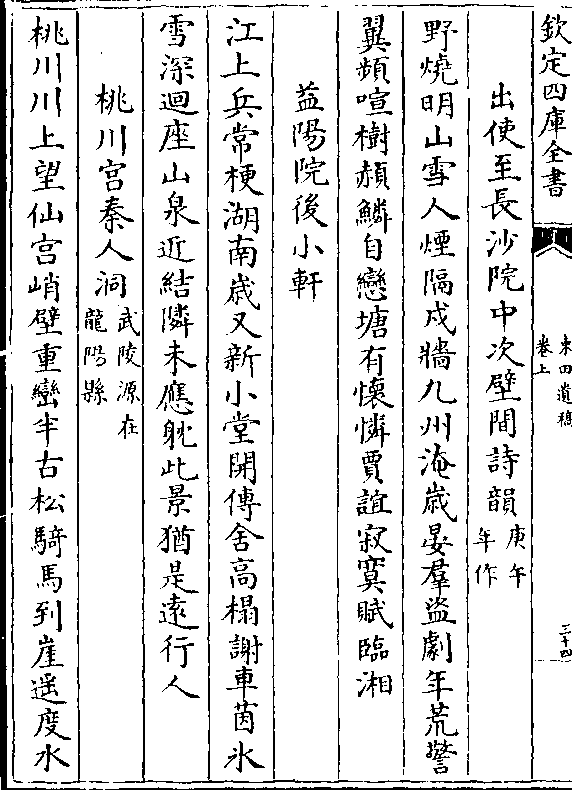 欽定四庫全書
東田遺稿
卷上
三十四
出使至長沙院中次壁間詩韻庚午
年作
野燒明山雪人煙隔戍牆九州淹歲晏羣盜劇年荒警
翼頻喧樹赬鱗自戀塘有懷憐賈誼寂寞賦臨湘
益陽院後小軒
江上兵常梗湖南歲又新小堂開傳舍高榻謝車茵氷
雪深迴座山泉近結隣未應躭此景猶是逺行人
桃川宫秦人洞武陵源在
龍陽縣
桃川川上望仙宫峭壁重巒半古松騎馬到崖遥度水